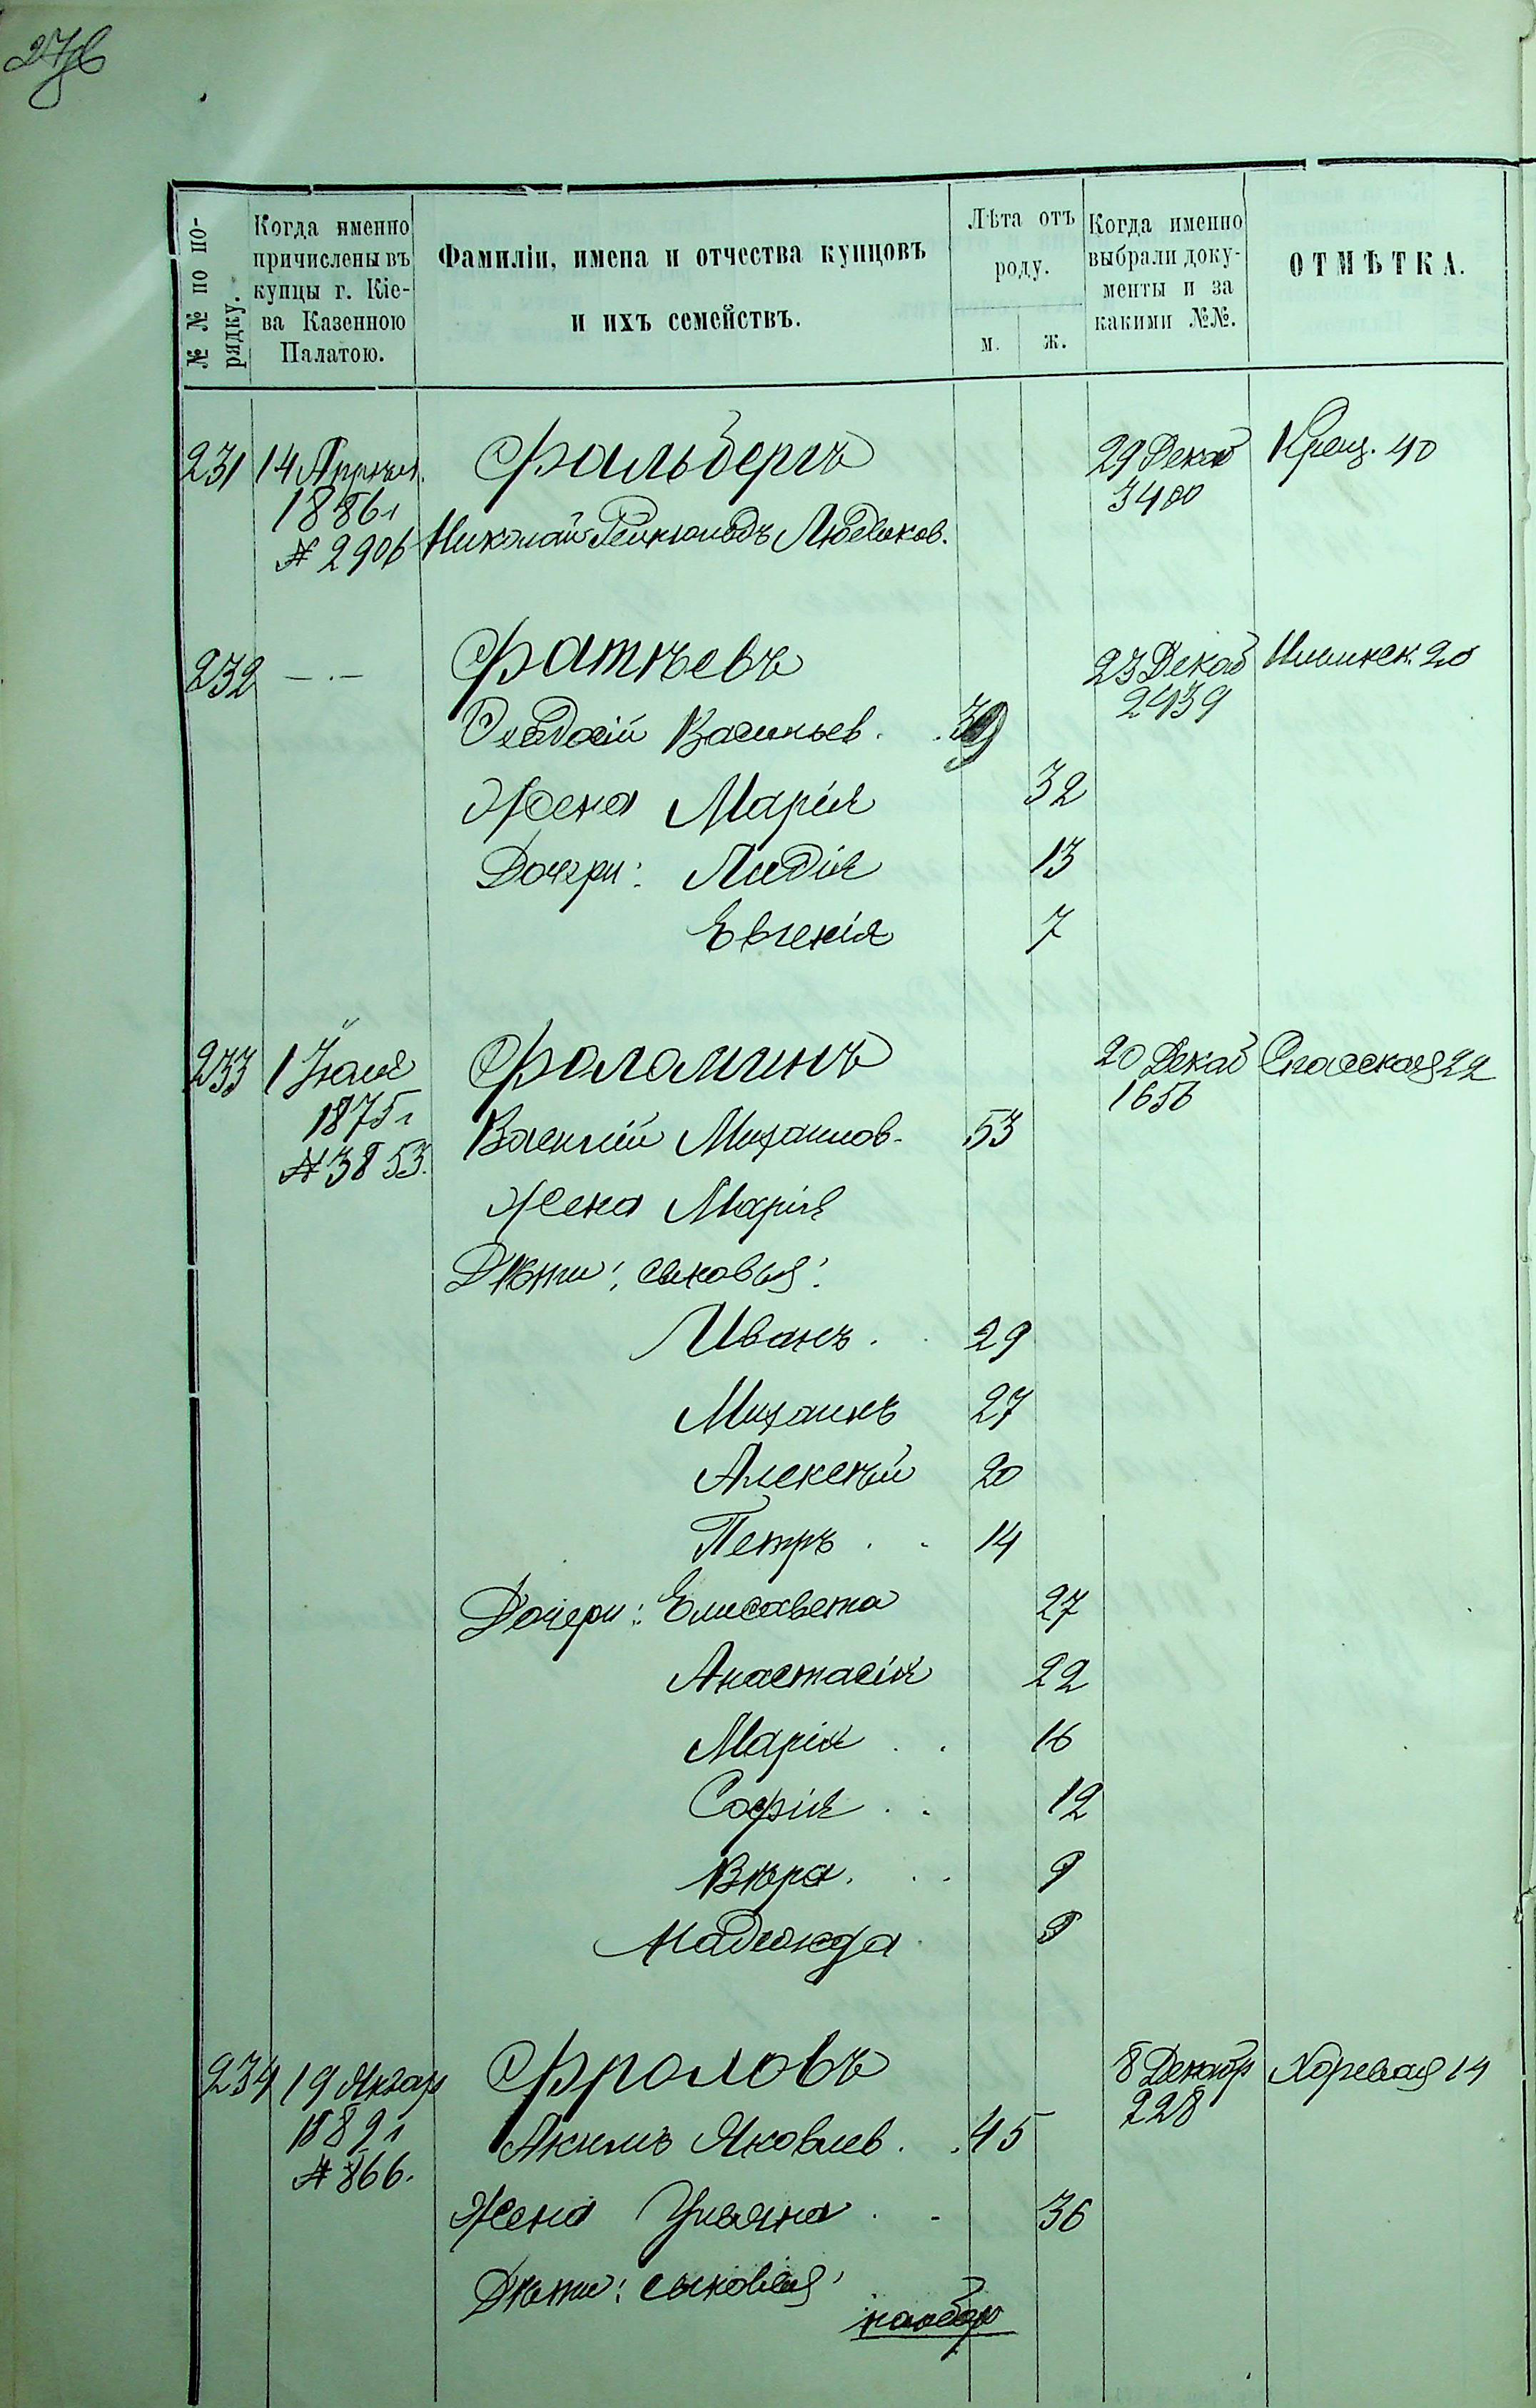 № № по по-
рядку.
Когда именно
причислены въ
купцы г. Кіе-
ва Казенною
Палатою.
Фамиліи, имена и отчества купцовъ
и ихъ семействъ.
Лѣта отъ
роду.
м. ж.
Когда именно
выбрали доку-
менты и за
какими №№.
ОТМѢТКА.
231 14 Апрѣля Фальбергъ 29 Декаб Крещ. 40
1886 г 3400
№ 2906 Николай Людвигов.
232 — · — Фатѣевъ 23 Декаб 20
2439
Ѳеодосій Васильев. 39
Жена Марія 32
Дочери: Лидія 13
Евгенія 7
233 1 Іюля Фаломинъ 20 Декаб Спасская 22
1875 г 1656
№ 3853. Василій Михаилов. 53
Жена Марія
Дѣти: сыновья:
Иванъ 29
Михаилъ 27
Алексѣй 20
Петръ 14
Дочери: Елисавета 27
Анастасія 22
Марія 16
Софія 12
Вѣра 9
Надежда
234 19 Январ Фроловъ 8 Декабр Хоревая 14
228
№ 866. Акимъ Яковлев. 45
Жена Ульяна 36
Дѣти: сыновья:
на обор